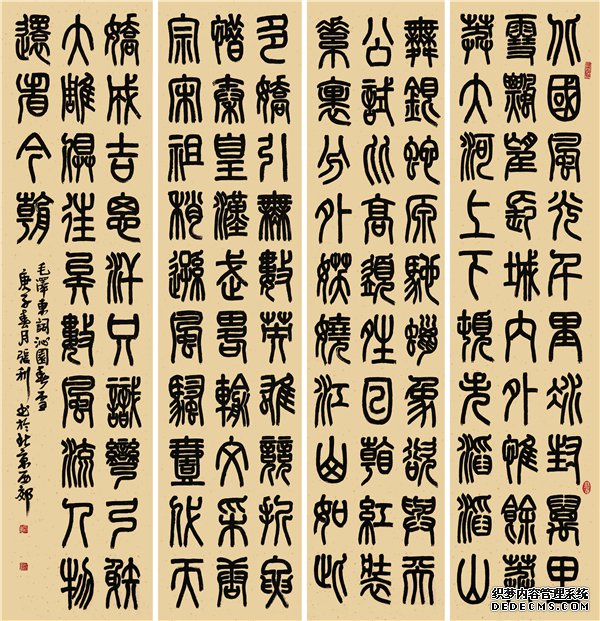 北國風光千里冰封萬里
雪飄望長城内外惟餘莽
莽大河上下頓失滔滔山
舞銀蛇原馳蠟象欲與天
公試比高須晴日看紅裝
素裹分外妖嬈江山如此
多嬌引無數英雄競折腰
惜秦皇漢武略輸文采唐
宗宋祖稍遜風騷壹代天
嬌成吉思汗只識彎弓射
大雕俱往矣數風流人物
還看今朝
毛澤東詞沁園春雪
庚子春月張利书於北京西郊
织梦内容管理系统
DEDECMS.COM